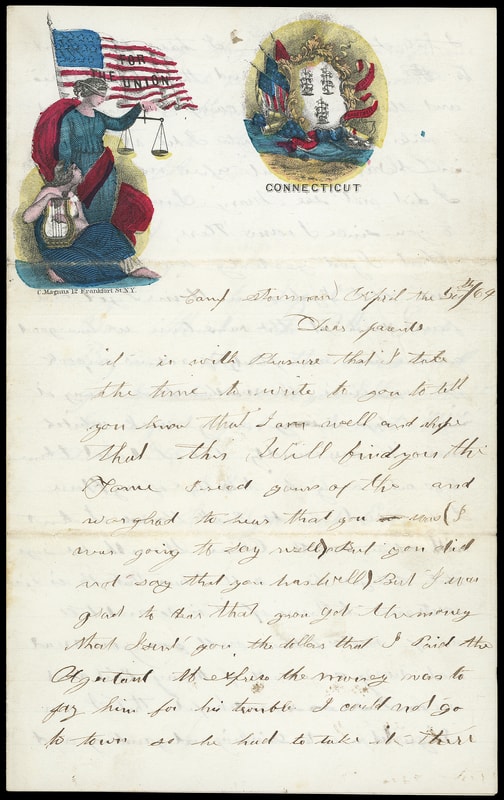 FOR
THE UNION
CONNECTICUT
C. Magnus 12 Frankfort St. N.Y.
Camp April the /64
Dear parents
it is with Pleasure that I take
the time to write to you to tell
you know that I am well and hope
that this Will find you the
Same I recd yours of the and
was glad to hear that you now (I
was going to say well) But you did
not say that you was well) But I was
glad to hear that you got the money
that I sent you, the dollars that I Paid the
Agutant to express the money was to
pay him for his trouble I could not go
to town so he had to take it there